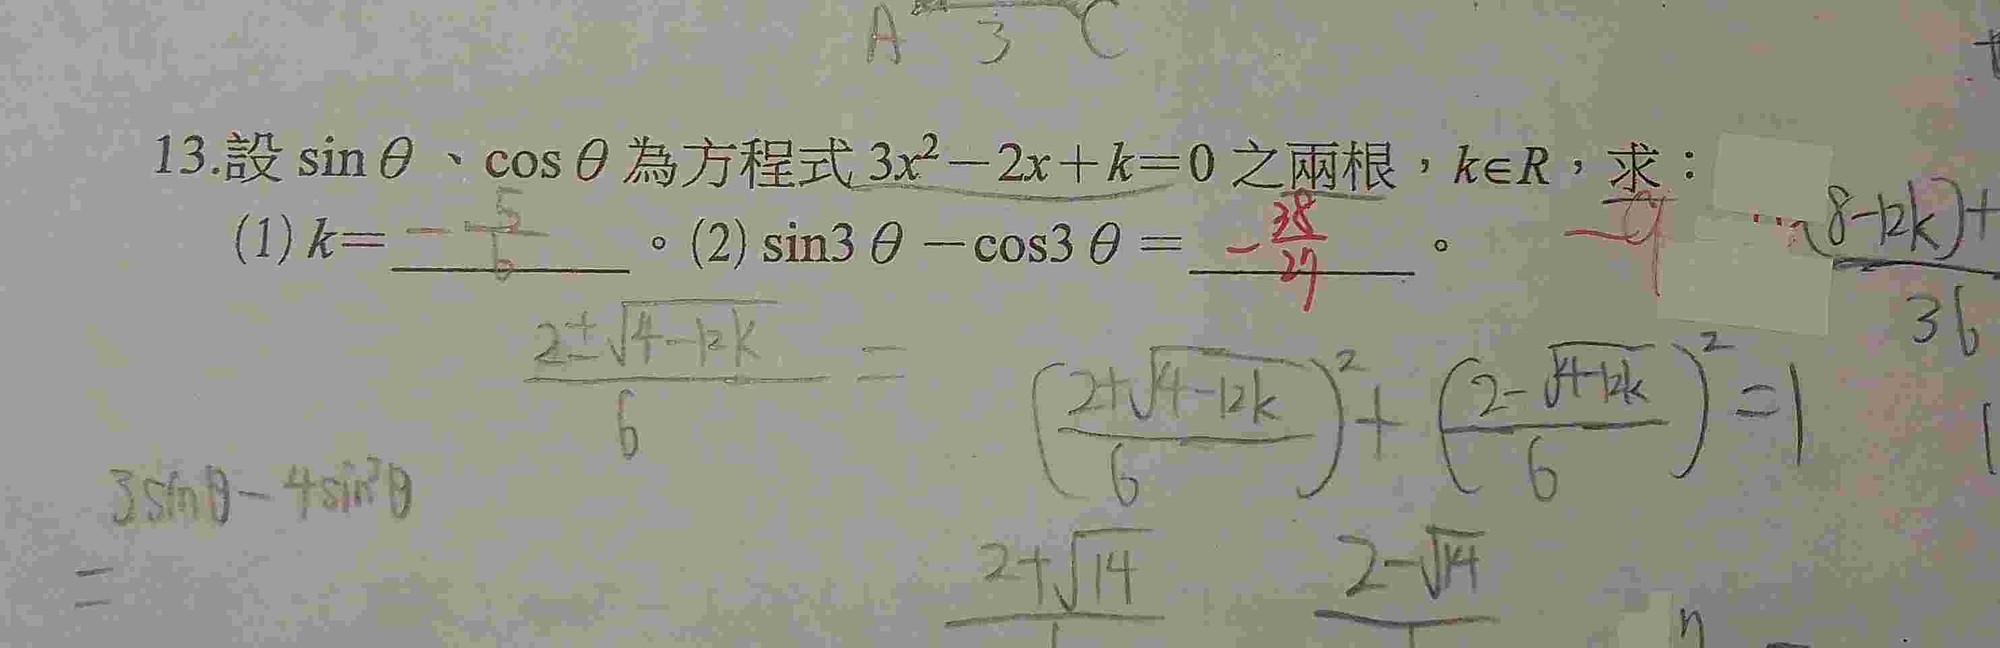 A 3 C
13.設 sin θ、cos θ 為方程式 3x²－2x＋k＝0 之兩根，k∈R，求：
(1) k＝ －5/6 。(2) sin3 θ －cos3 θ ＝ －38/27 。 －9
8－12k)＋
36
(2±√(4－12k))/6 ＝ ((2＋√(4－12k))/6)²＋((2－√(4－12k))/6)²＝1
3sinθ－4sin³θ
＝
2＋√14 2－√14